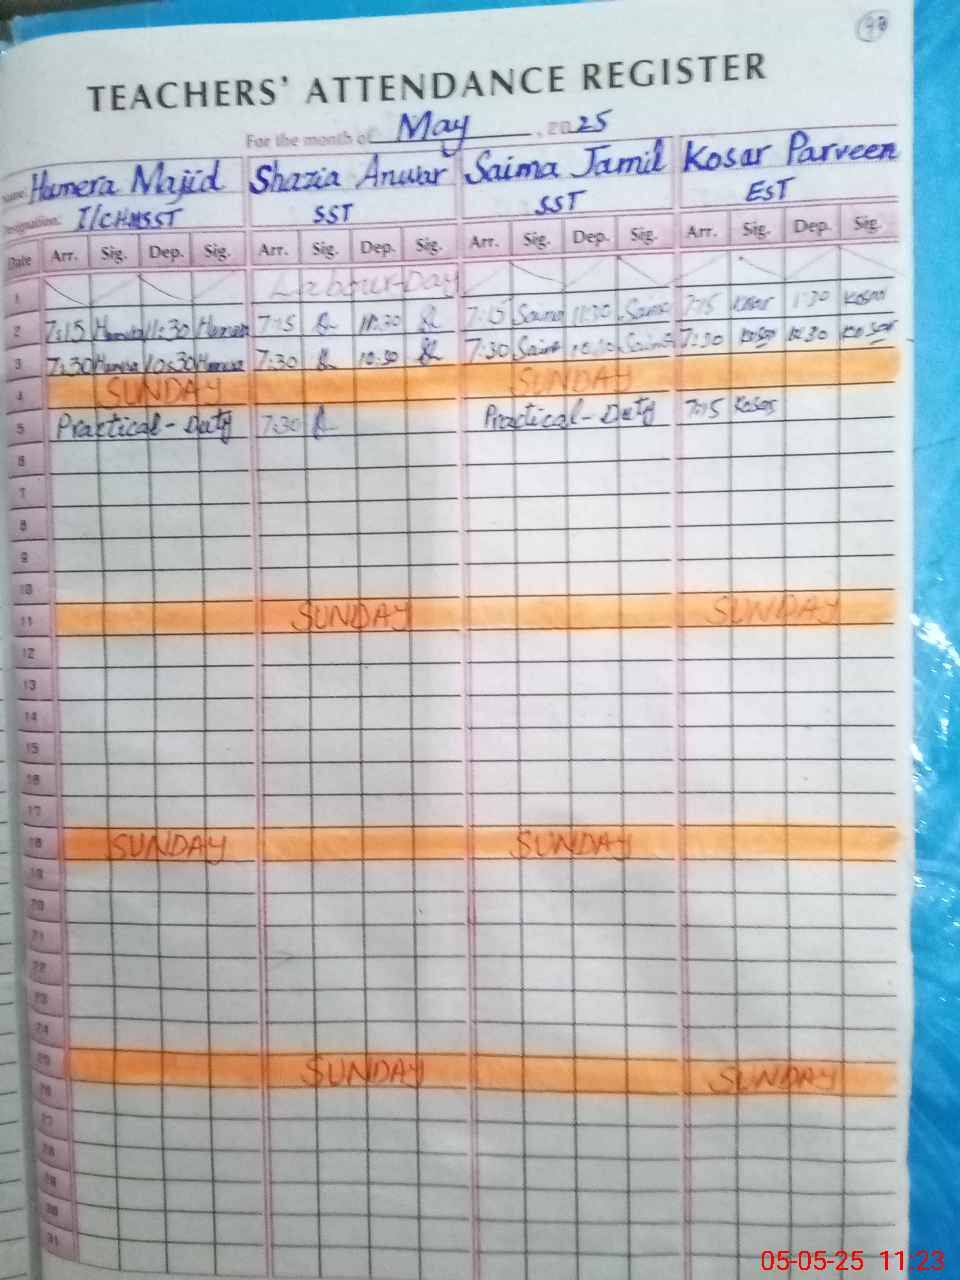 TEACHERS' ATTENDANCE REGISTER
For the month of May, 2025
Name: Humera Majid Shazia Anwar Saima Jamil Kosar Parveen
Designation: I/CHMSST SST SST EST
Date Arr. Sig. Dep. Sig. Arr. Sig. Dep. Sig. Arr. Sig. Dep. Sig. Arr. Sig. Dep. Sig.
1 Labour Day
2 7:15 Humera 11:30 Humera 7:15 11:30 7:15 Saima 11:30 Saima 7:15 Kosar 1:30 Kosar
3 7:30 Humera 10:30 Humera 7:30 10:30 7:30 Saima 10:30 Saima 7:30 Kosar 10:30 Kosar
4 SUNDAY SUNDAY
5 Practical - Duty 7:30 Practical - Duty 7:15 Kosar
6
7
8
9
10
11 SUNDAY SUNDAY
12
13
14
15
16
17
18 SUNDAY SUNDAY
19
20
21
22
23
24
25 SUNDAY SUNDAY
26
27
28
29
30
31
05-05-25 11:23